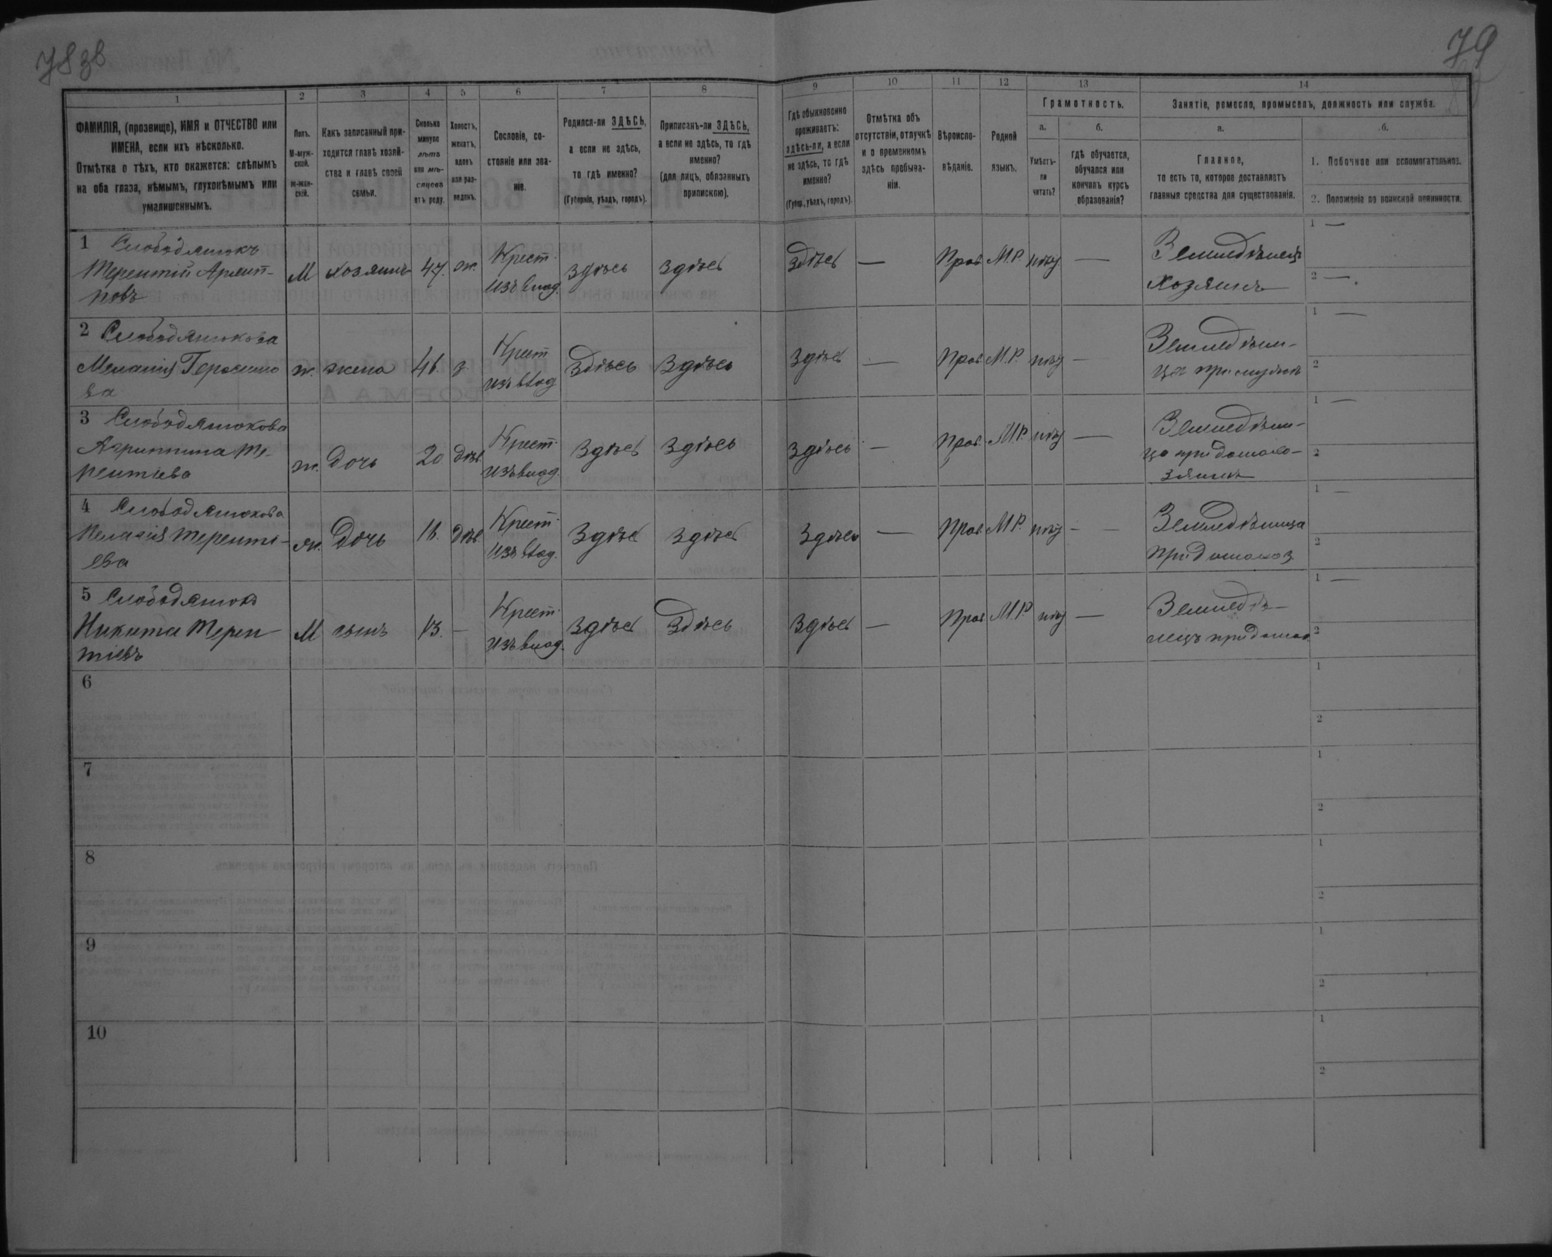 78 зв
79
1
2
3
4
5
6
7
8
9
10
11
12
13
14
ФАМИЛІЯ, (прозвище), ИМЯ и ОТЧЕСТВО или
ИМЕНА, если ихъ нѣсколько.
Отмѣтка о тѣхъ, кто окажется: слѣпымъ
на оба глаза, нѣмымъ, глухонѣмымъ или
умалишеннымъ.
Полъ.
М-муж-
ской.
ж-жен-
скій.
Какъ записанный при-
ходится главѣ хозяй-
ства и главѣ своей
семьи.
Сколько
минуло
лѣтъ
или мѣ-
сяцевъ
отъ роду.
Холостъ,
женатъ,
вдовъ
или раз-
веденъ.
Сословіе, со-
стояніе или зва-
ніе.
Родился-ли ЗДѢСЬ,
а если не здѣсь,
то гдѣ именно?
(Губернія, уѣздъ, городъ).
Приписанъ-ли ЗДѢСЬ,
а если не здѣсь, то гдѣ
именно?
(для лицъ, обязанныхъ
припискою).
Гдѣ обыкновенно
проживаетъ:
здѣсь-ли, а если
не здѣсь, то гдѣ
именно?
(Губер., уѣздъ, городъ).
Отмѣтка объ
отсутствіи, отлучкѣ
и о временномъ
здѣсь пребыва-
ніи.
Вѣроиспо-
вѣданіе.
Родной
языкъ.
Грамотность.
а.
б.
Умѣетъ-
ли
читать?
гдѣ обучается,
обучался или
кончилъ курсъ
образованія?
Занятія, ремесло, промыселъ, должность или служба.
а.
б.
Главное,
то есть то, которое доставляетъ
главныя средства для существованія.
1. Побочное или вспомогательное.
2. Положеніе по воинской повинности.
1 Слободянюкъ
Терентій Архип-
повъ
М хозяинъ 47 ж. Крест. изъ влад. здѣсь здѣсь здѣсь — Прав МР нѣту —
Земледѣлецъ
хозяинъ
1 —
2 —
2 Слободянюкова
Меланія Герасимо
ва
ж. жена 46 з Крест изъ влад Здѣсь Здѣсь здѣсь — Прав МР нѣту —
Земледѣли-
ца при мужѣ
1 —
2
3 Слободянюкова
Агриппина Те-
рентіева
ж. дочь 20 дѣв Крест изъ влад здѣсь здѣсь здѣсь — Прав МР нѣту —
Земледѣли-
ца при домохо-
зяинѣ
1 —
2
4 Слободянюкова
Пелагія Теренті-
ева
ж. дочь 16 дѣв Крест. изъ влад. Здѣсь здѣсь здѣсь — Прав МР нѣту —
Земледѣлица
при домохоз
1 —
2
5 Слободянюкъ
Никита Терен-
тіевъ
М сынъ 13. — Крест. изъ влад. здѣсь Здѣсь здѣсь — Прав МР нѣту —
Земледѣ-
лецъ при домох
1 —
2
6
1
2
7
1
2
8
1
2
9
1
2
10
1
2